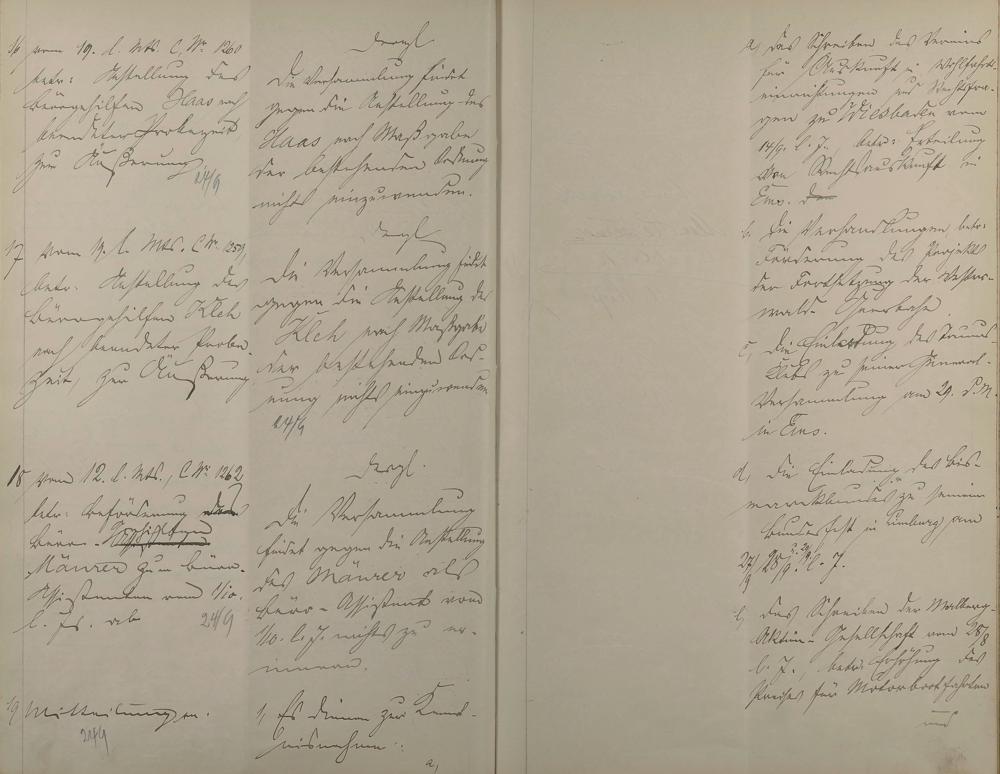 16 vom 19. l. Mts. C. Nr. 1260
betr: Anstellung des
Bürogehilfen Haas nach
beendeter Probezeit,
zur Äußerung
24/9
dergl.
Die Versammlung findet
gegen die Anstellung des
Haas nach Maßgabe
der bestehenden Ordnung
nichts einzuwenden.
17 vom 19. l. Mts. C. Nr. 1259,
betr. Anstellung des
Bürogehilfen Klch
nach beendeter Probe-
zeit, zur Äußerung
dergl.
Die Versammlung findet
gegen die Anstellung des
Klch nach Maßgabe
der bestehenden Ord-
nung nichts einzuwenden
24/9
18 vom 12. l. Mts., C. Nr. 1262
betr: Beförderung des
Büro-
Mäurer zum Büro-
Assistenten vom 1/10.
l. Js. ab
24/9
dergl.
Die Versammlung
findet gegen die Anstellung
des Mäurer als
Büro-Assistent vom
1/10. l. J. nichts zu er-
innern.
19 Mitteilungen.
24/9
1, Es dienen zur Kennt-
nisnahme:
a,
a, Das Schreiben des Vereins
für Auskunft in Wohlfahrts-
einrichtungen und Rechtsfra-
gen zu Wiesbaden vom
17/9. l. J., betr: Erteilung
von Rechtsauskunft in
Ems.
b. Die Verhandlungen betr:
Förderung des Projekts
der Fortsetzung der Wester-
wald-Querbahn
c, Die Einladung des Taunus-
Klubs zu seiner General-
Versammlung am 29. d. M.
in Ems.
d, Die Einladung des Bis-
marckbundes zu seinem
Bundesfest in Limburg am
27/9 28. u. 29/9. l. J.
e, Das Schreiben der Malberg-
Aktien-Gesellschaft vom 28/8
l. J., betr: Erhöhung des
Preises für Motorbootfahrten
und